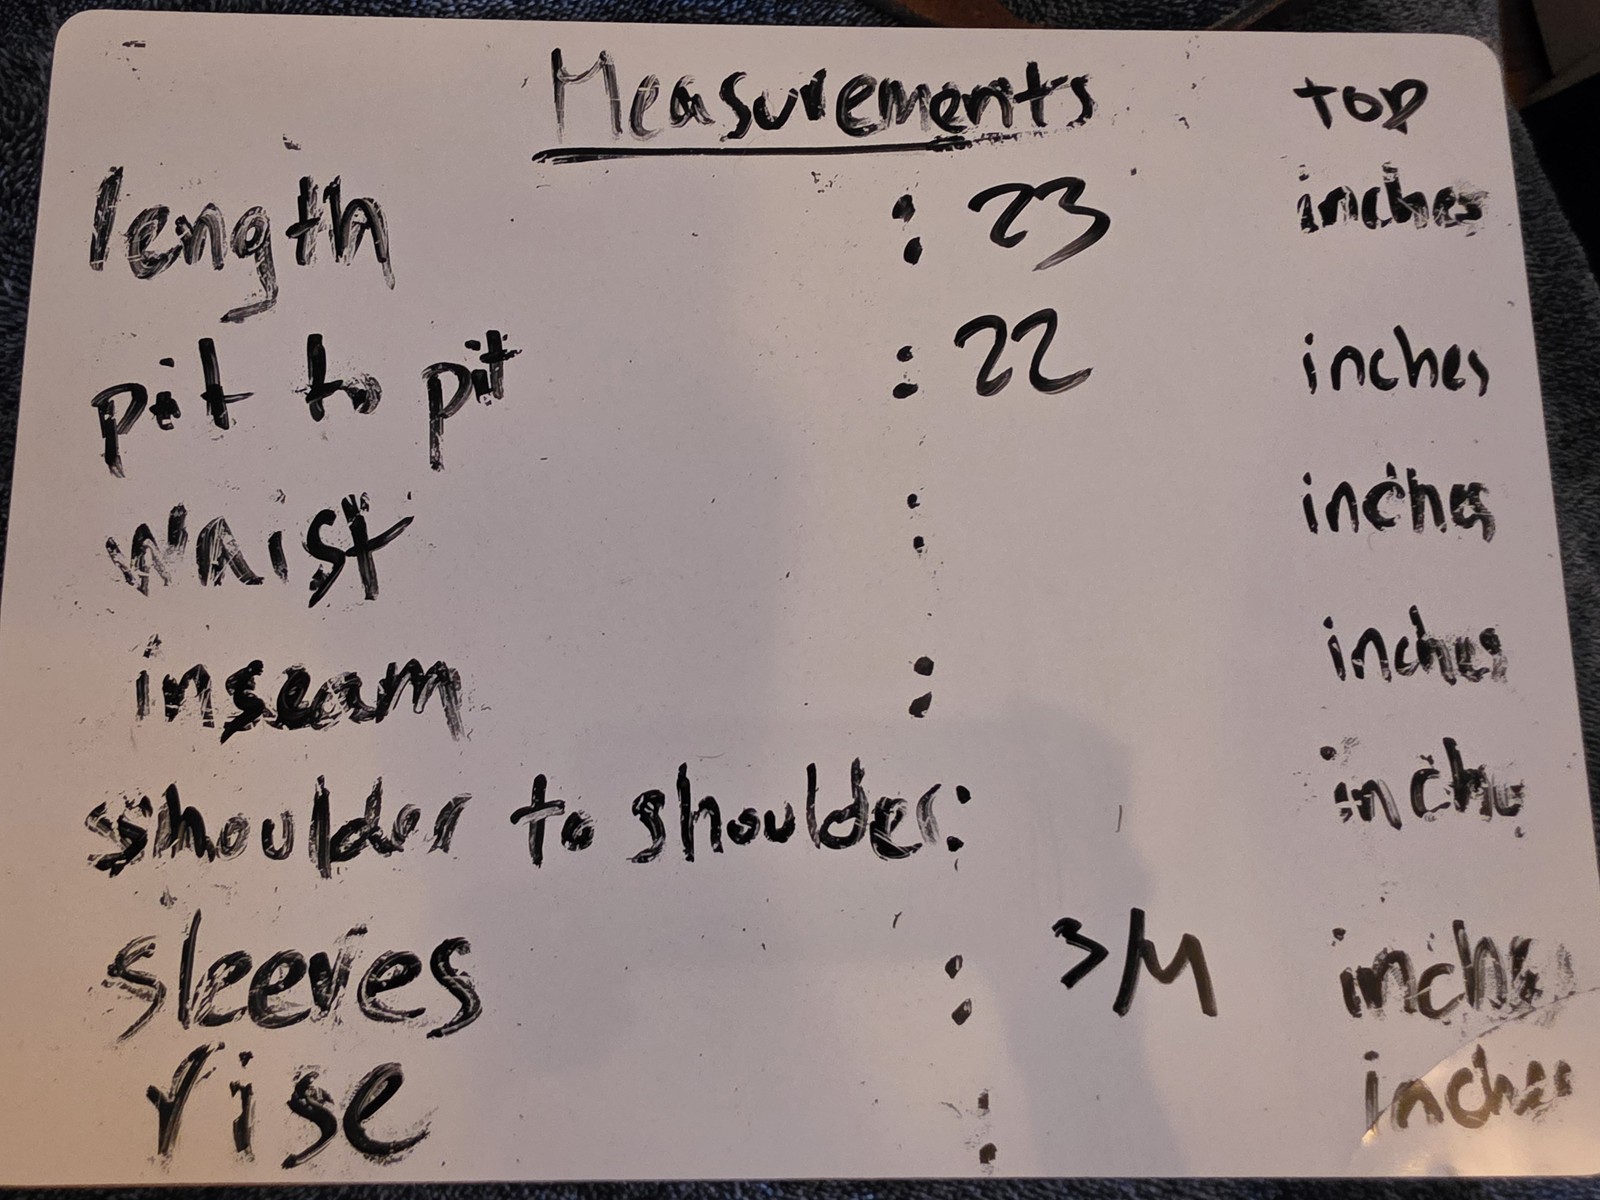 Measurements TOP
length : 23 inches
pit to pit : 22 inches
waist : inches
inseam : inches
shoulder to shoulder: inches
sleeves : 3/4 inches
rise : inches